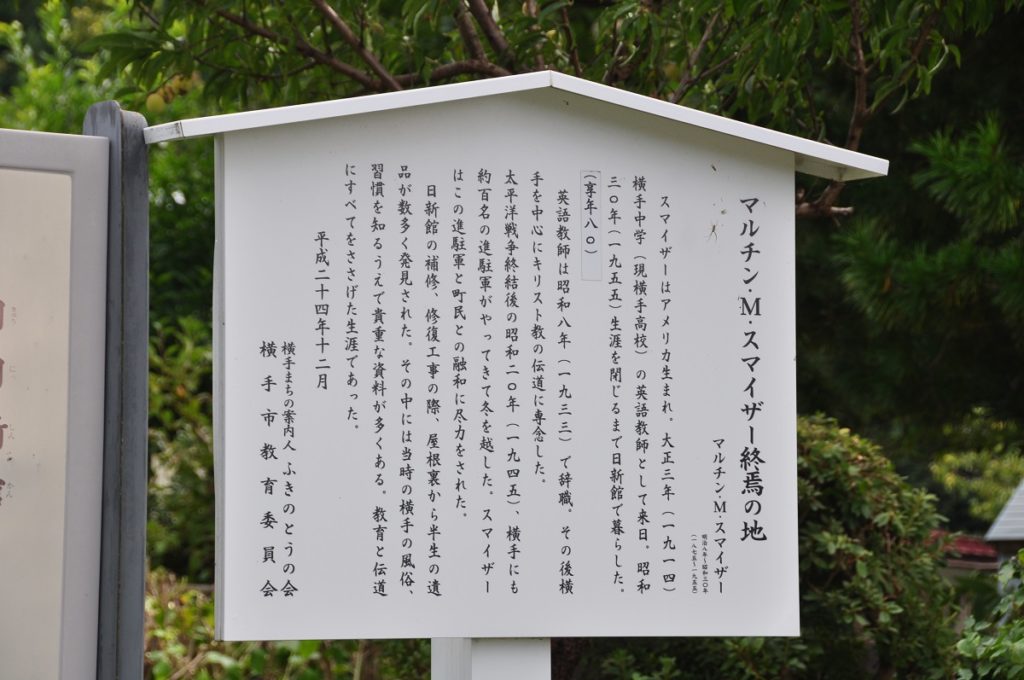 マルチン・M・スマイザー終焉の地
マルチン・M・スマイザー
明治八年～昭和三〇年
(一八七五～一九五五)
スマイザーはアメリカ生まれ。大正三年(一九一四)
横手中学(現横手高校)の英語教師として来日。昭和
三〇年(一九五五)生涯を閉じるまで日新館で暮らした。
(享年八〇)
英語教師は昭和八年(一九三三)で辞職。その後横
手を中心にキリスト教の伝道に専念した。
太平洋戦争終結後の昭和二〇年(一九四五)、横手にも
約百名の進駐軍がやってきて冬を越した。スマイザー
はこの進駐軍と町民との融和に尽力をされた。
日新館の補修、修復工事の際、屋根裏から半生の遺
品が数多く発見された。その中には当時の横手の風俗、
習慣を知るうえで貴重な資料が多くある。教育と伝道
にすべてをささげた生涯であった。
平成二十四年十二月
横手まちの案内人 ふきのとうの会
横手市教育委員会